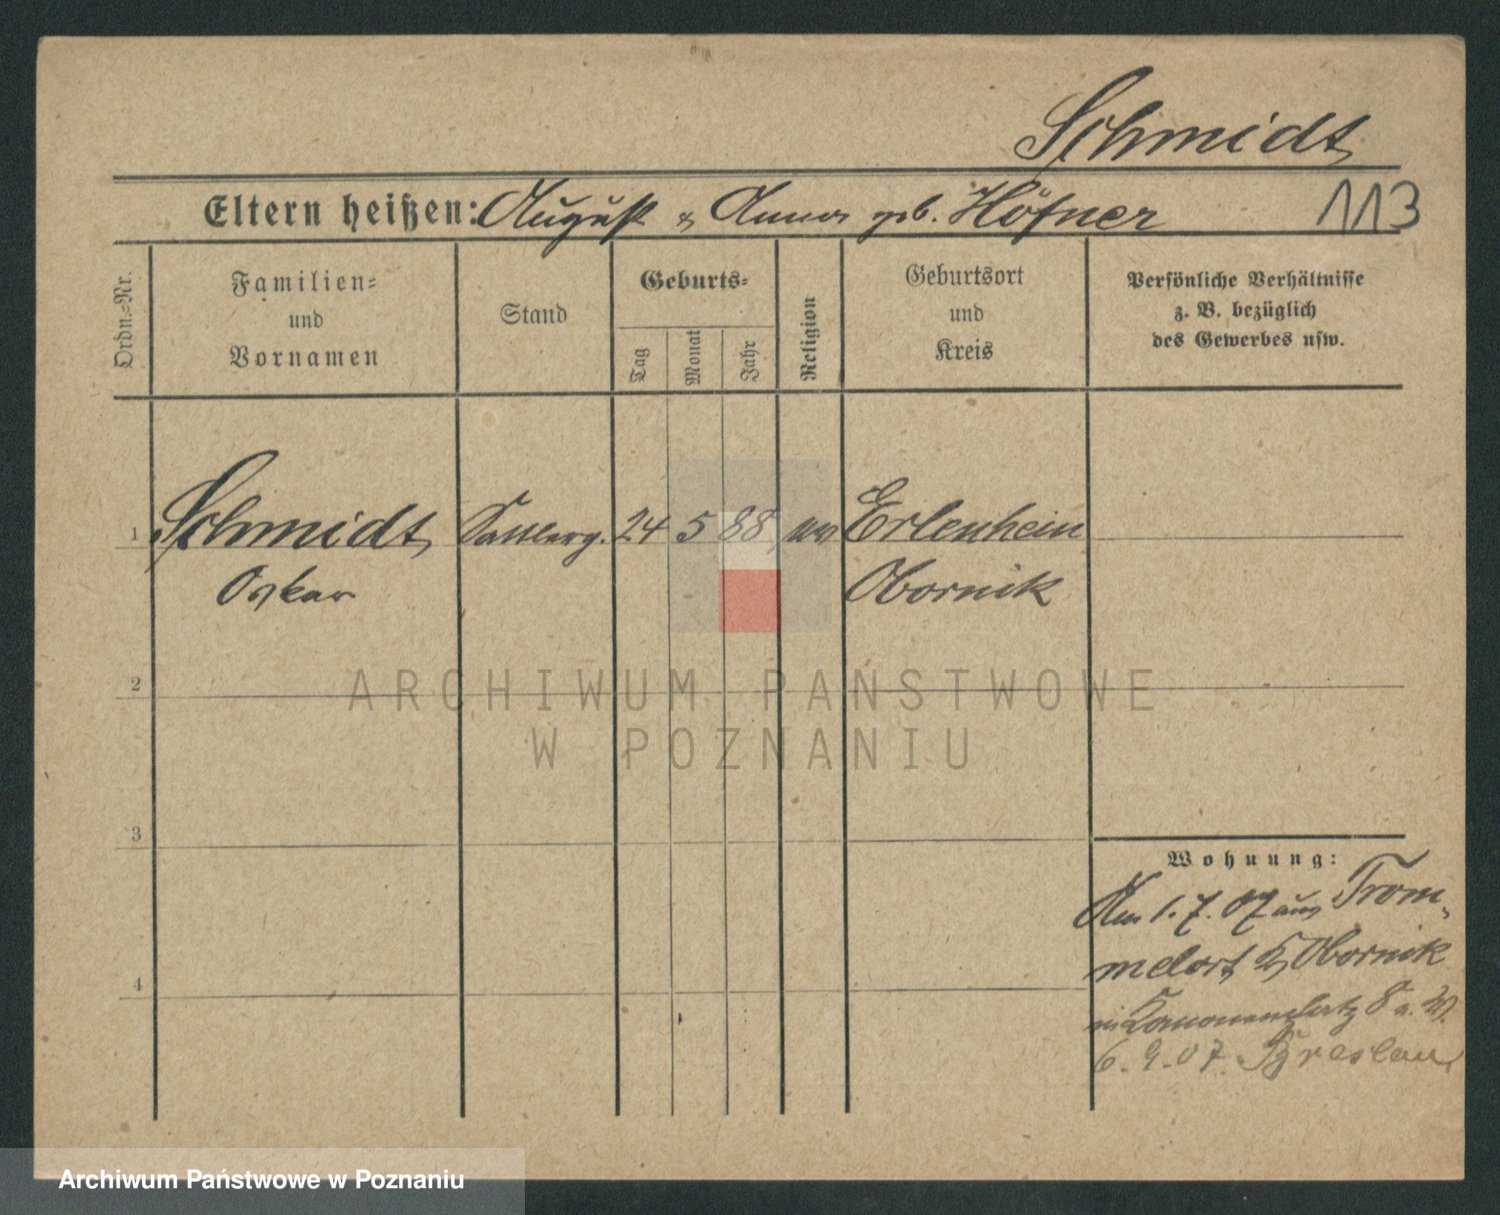 Schmidt
Eltern heißen: August & Anna geb. Höfner 113
Ordn.=Nr.
Familien=
und
Vornamen
Stand
Geburts=
Tag
Monat
Jahr
Religion
Geburtsort
und
Kreis
Persönliche Verhältnisse
z. B. bezüglich
des Gewerbes usw.
1 Schmidt Sattlerg. 24 5 88 Erlenhein
Oskar Obornik
2
ARCHIWUM PAŃSTWOWE
W POZNANIU
3
Wohnung:
Am 1.7.07 aus Trom-
melort Obornik
4
Kanonenplatz 8 a. W.
6.9.07. Breslau
Archiwum Państwowe w Poznaniu